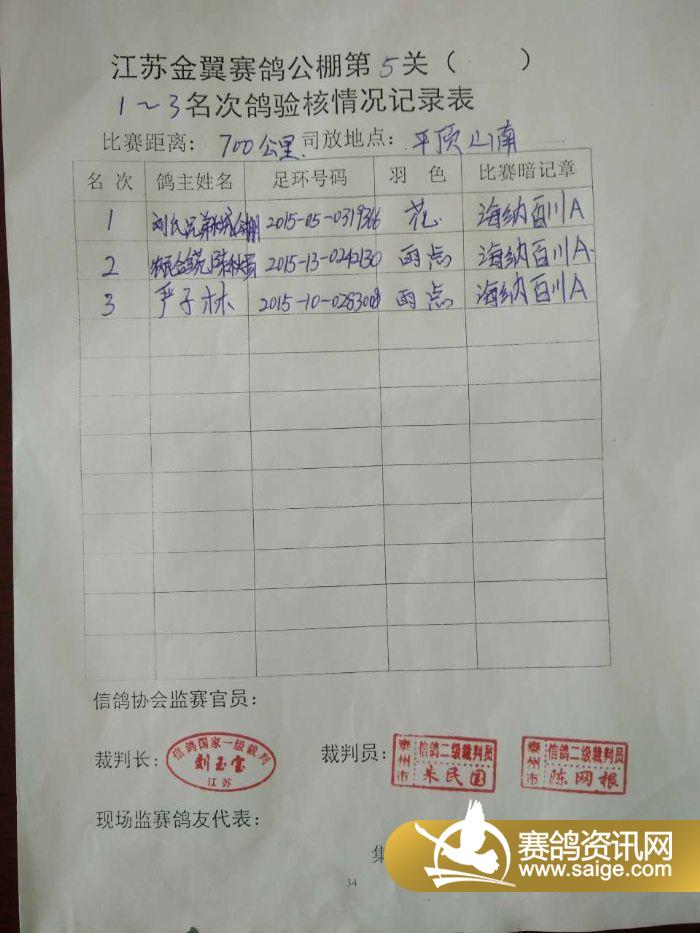 江苏金翼赛鸽公棚第5关（ ）
1～3名次鸽验核情况记录表
比赛距离：700公里 司放地点：平顶山南
名 次 鸽主姓名 足环号码 羽 色 比赛暗记章
1 刘氏兄弟 2015-05-0319316 花 海纳百川A
2 2015-13-0242130 雨点 海纳百川A
3 严子林 雨点 海纳百川A
信鸽协会监赛官员：
裁判长： 信鸽国家一级裁判 刘玉宝 江苏 裁判员： 泰州市 信鸽二级裁判员 朱民国 泰州市 信鸽二级裁判员 陈网根
现场监赛鸽友代表：
集
34
赛鸽资讯网
www.saige.com